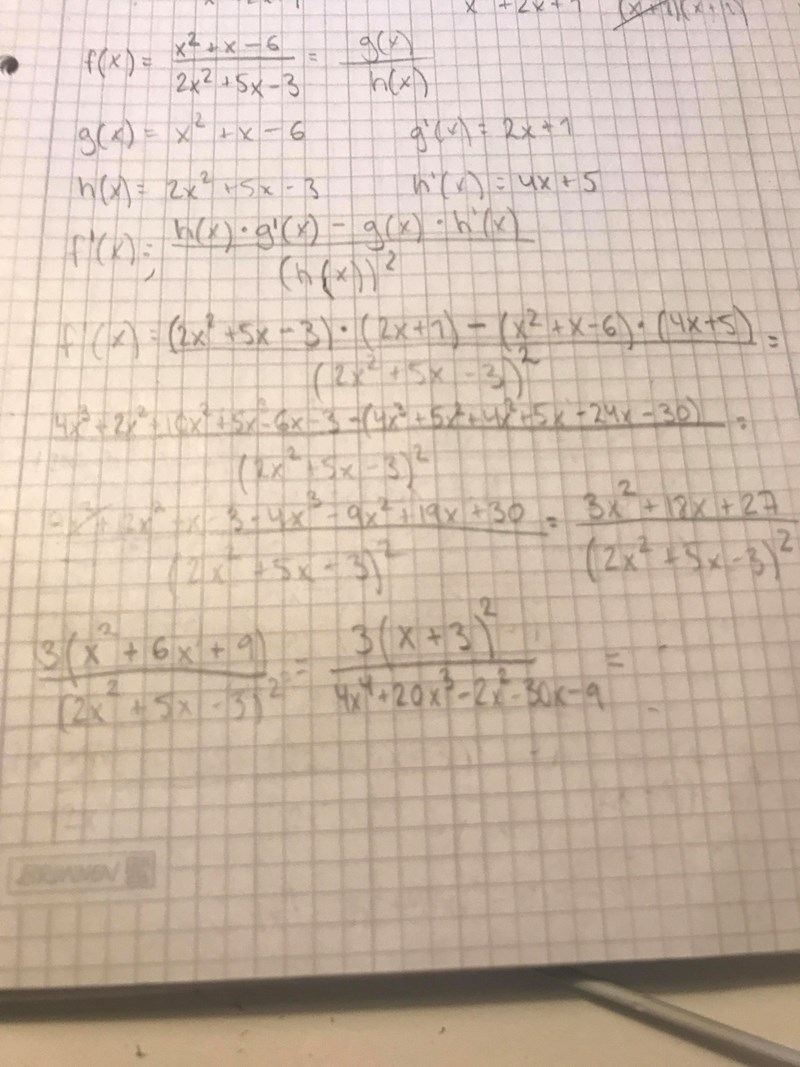 x² + 2x + 1 (x+1)(x+1)
f(x) = (x² + x - 6)/(2x² + 5x - 3) = g(x)/h(x)
g(x) = x² + x - 6 g'(x) = 2x + 1
h(x) = 2x² + 5x - 3 h'(x) = 4x + 5
f'(x) = (h(x) · g'(x) - g(x) · h'(x))/(h(x))²
f'(x) = ((2x² + 5x - 3) · (2x + 1) - (x² + x - 6) · (4x + 5))/(2x² + 5x - 3)² =
(4x³ + 2x² + 10x² + 5x - 6x - 3 - (4x³ + 5x² + 4x² + 5x - 24x - 30))/(2x² + 5x - 3)² =
- 3 - 4x³ - 9x² + 19x + 30/(2x² + 5x - 3)² = (3x² + 18x + 27)/(2x² + 5x - 3)²
3(x² + 6x + 9)/(2x² + 5x - 3)² = 3(x + 3)²/(4x⁴ + 20x³ - 2x² - 30x - 9) =